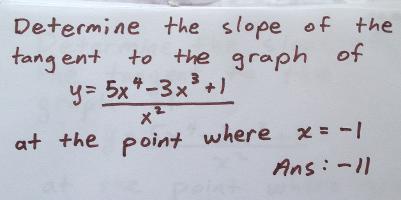 Determine the slope of the
tangent to the graph of
y= 5x⁴-3x³+1
x²
at the point where x = -1
Ans: -11